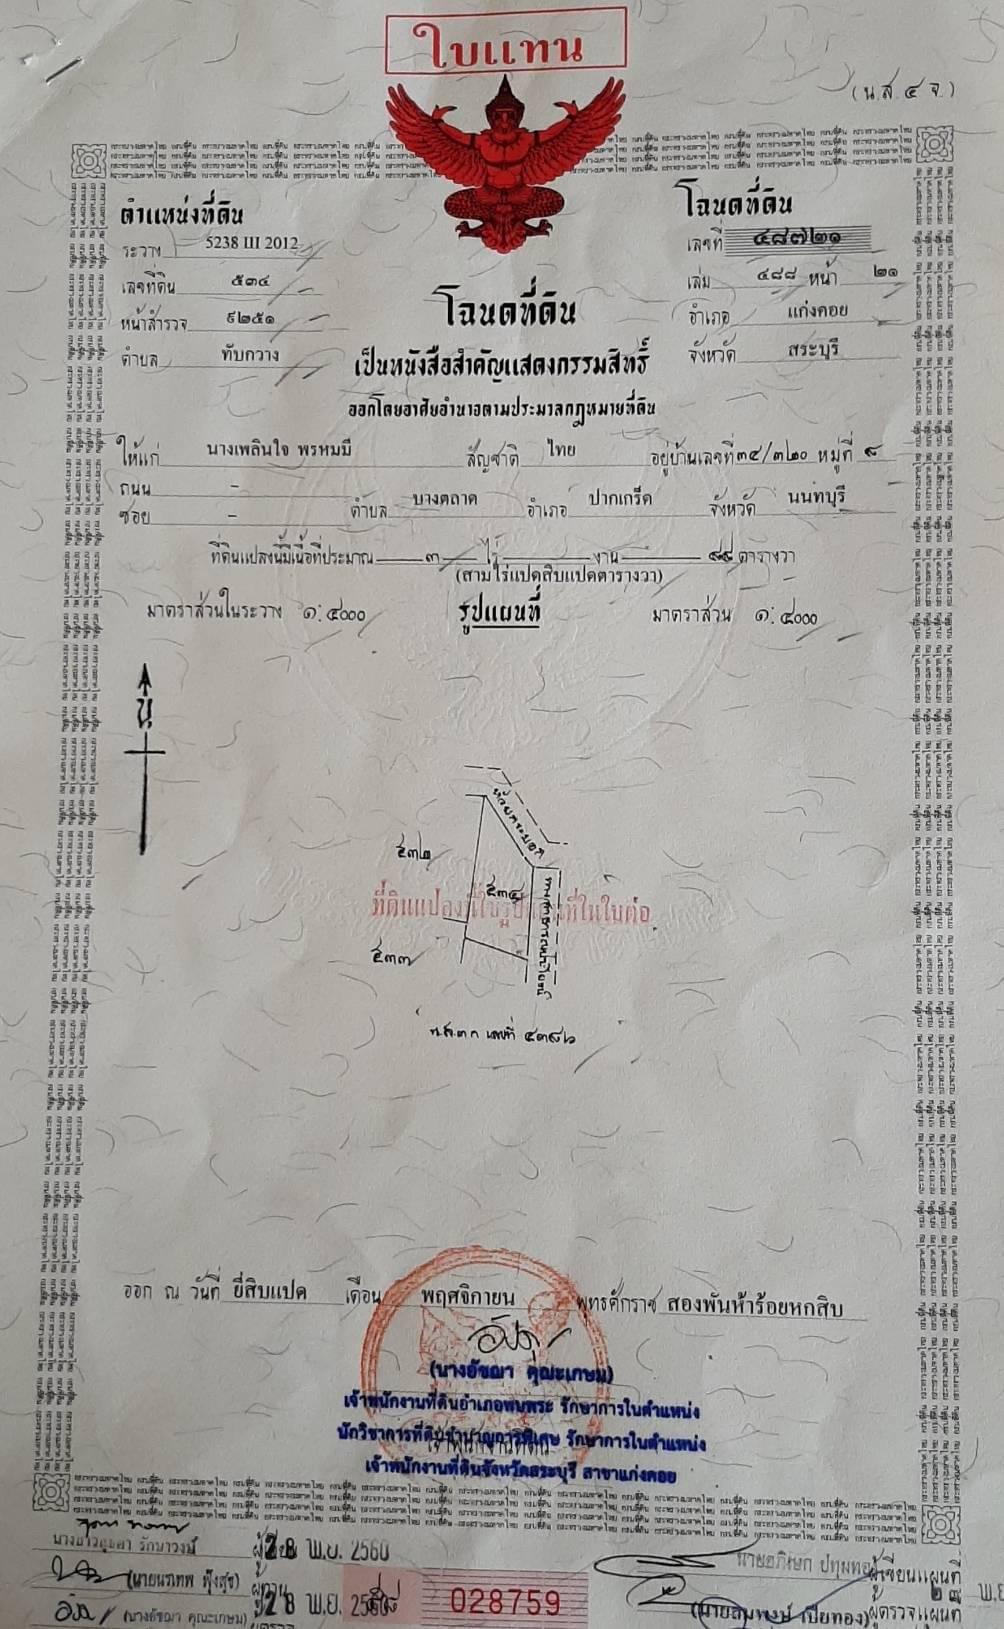 ใบแทน
(น.ส. ๔ จ.)
ตำแหน่งที่ดิน
ระวาง 5238 III 2012
เลขที่ดิน ๕๓๔
หน้าสำรวจ ๙๒๕๑
ตำบล ทับกวาง
โฉนดที่ดิน
เลขที่ ๔๘๗๒๑
เล่ม ๔๘๘ หน้า ๒๑
อำเภอ แก่งคอย
จังหวัด สระบุรี
โฉนดที่ดิน
เป็นหนังสือสำคัญแสดงกรรมสิทธิ์
ออกโดยอาศัยอำนาจตามประมวลกฎหมายที่ดิน
ให้แก่ นางเพลินใจ พรหมมี สัญชาติ ไทย อยู่บ้านเลขที่ ๓๔/๓๒๐ หมู่ที่ ๘
ถนน - ซอย - ตำบล บางตลาด อำเภอ ปากเกร็ด จังหวัด นนทบุรี
ที่ดินแปลงนี้มีเนื้อที่ประมาณ ๓ ไร่ งาน ๘๘ ตารางวา
(สามไร่แปดสิบแปดตารางวา)
มาตราส่วนในระวาง ๑:๔๐๐๐ รูปแผนที่ มาตราส่วน ๑:๔๐๐๐
น
ห้วยกระบอก
๕๓๒
๕๓๔
ที่ดินแปลงนี้มีรูปแผนที่ในใบต่อ
ทางสาธารณประโยชน์
๕๓๓
น.ส.๓ ก เลขที่
ออก ณ วันที่ ยี่สิบแปด เดือน พฤศจิกายน พุทธศักราช สองพันห้าร้อยหกสิบ
(นางอัชฌา คุณะเกษม)
เจ้าพนักงานที่ดินอำเภอพนพระ รักษาการในตำแหน่ง
นักวิชาการที่ดินชำนาญการพิเศษ รักษาการในตำแหน่ง
เจ้าพนักงานที่ดินจังหวัดสระบุรี สาขาแก่งคอย
28 พ.ย. 2560
นายอภิเษก ปทุมทอง ผู้เขียนแผนที่
(นายนรเทพ พุ้งสุข) ผู้ทาน
28 พ.ย. 2560
028759
๒๘ พ.ย
(นางอัชฌา คุณะเกษม) ผู้ตรวจ
(นายสมพงษ์ เปียทอง) ผู้ตรวจแผนที่